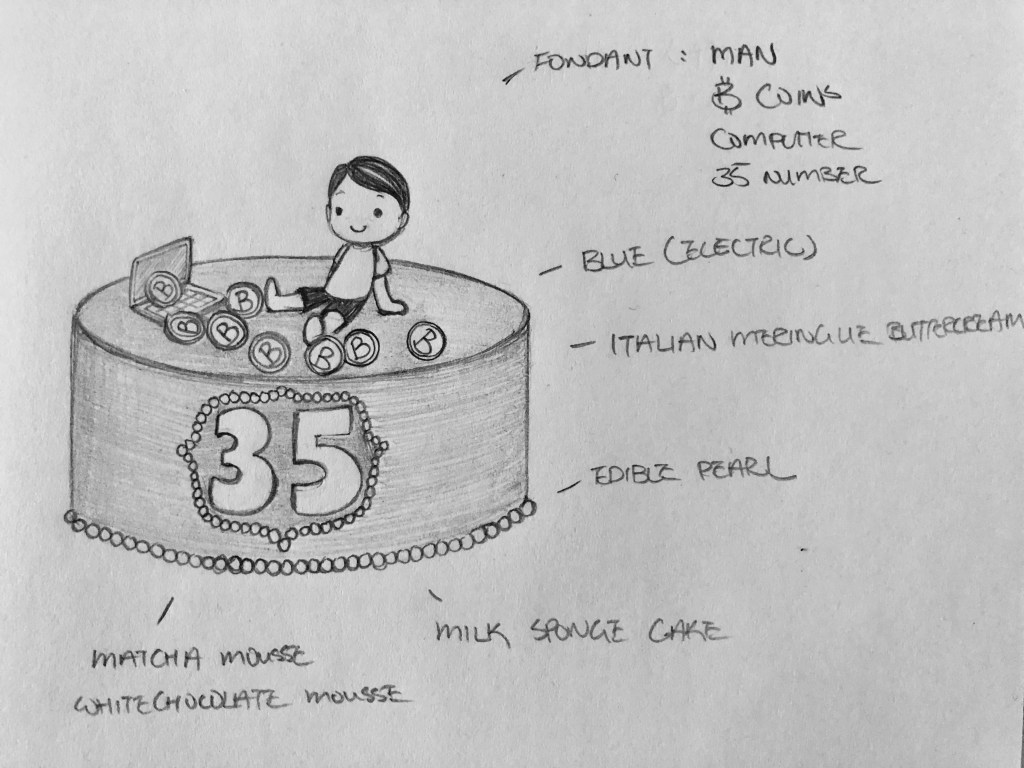 FONDANT : MAN
₿ COINS
COMPUTER
35 NUMBER
BLUE (ELECTRIC)
ITALIAN MERINGUE BUTTERCREAM
B
B
B
B
B
B
B
B
35
EDIBLE PEARL
MILK SPONGE CAKE
MATCHA MOUSSE
WHITECHOCOLATE MOUSSE